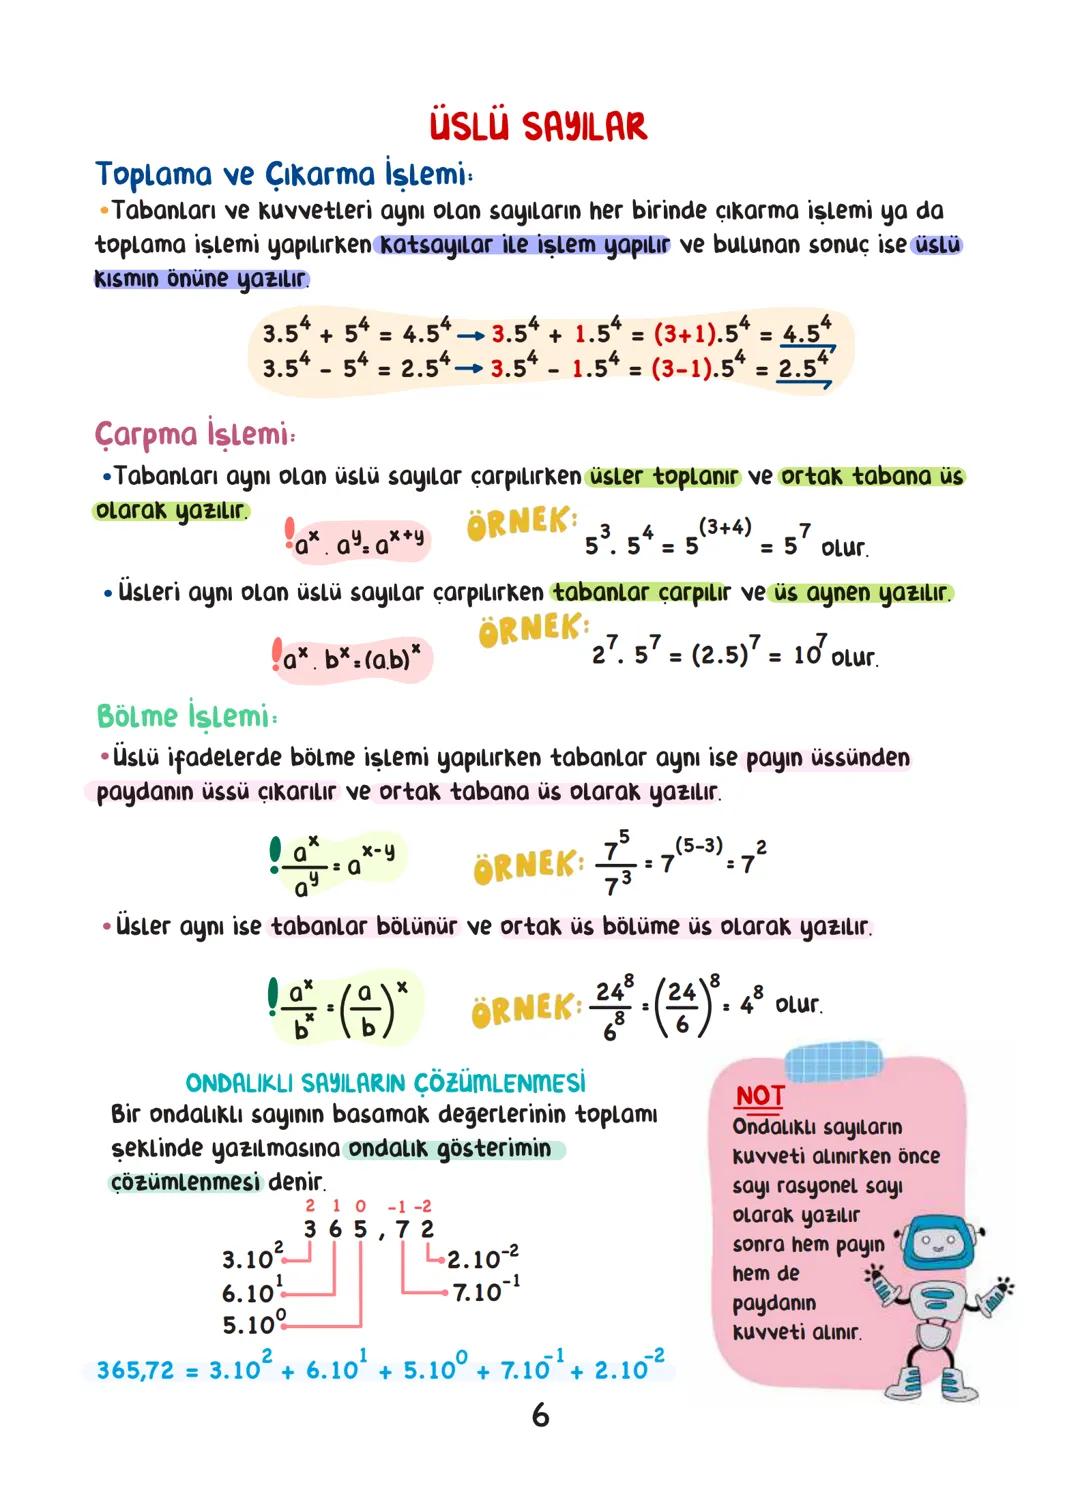 ÜSLÜ SAYILAR
Toplama ve Çıkarma İşlemi:
•Tabanları ve kuvvetleri aynı olan sayıların her birinde çıkarma işlemi ya da
toplama işlemi yapılırken katsayılar ile işlem yapılır ve bulunan sonuç ise üslü
kısmın önüne yazılır.
3.5⁴ + 5⁴ = 4.5⁴ → 3.5⁴ + 1.5⁴ = (3+1).5⁴ = 4.5⁴
3.5⁴ - 5⁴ = 2.5⁴ → 3.5⁴ - 1.5⁴ = (3-1).5⁴ = 2.5⁴
Çarpma İşlemi:
•Tabanları aynı olan üslü sayılar çarpılırken üsler toplanır ve ortak tabana üs
olarak yazılır.
! aˣ . aʸ = aˣ⁺ʸ ÖRNEK: 5³ . 5⁴ = 5⁽³⁺⁴⁾ = 5⁷ olur.
• Üsleri aynı olan üslü sayılar çarpılırken tabanlar çarpılır ve üs aynen yazılır.
! aˣ . bˣ = (a.b)ˣ ÖRNEK: 2⁷ . 5⁷ = (2.5)⁷ = 10⁷ olur.
Bölme İşlemi:
•Üslü ifadelerde bölme işlemi yapılırken tabanlar aynı ise payın üssünden
paydanın üssü çıkarılır ve ortak tabana üs olarak yazılır.
! aˣ/aʸ = aˣ⁻ʸ ÖRNEK: 7⁵/7³ = 7⁽⁵⁻³⁾ = 7²
•Üsler aynı ise tabanlar bölünür ve ortak üs bölüme üs olarak yazılır.
! aˣ/bˣ = (a/b)ˣ ÖRNEK: 24⁸/6⁸ = (24/6)⁸ = 4⁸ olur.
ONDALIKLI SAYILARIN ÇÖZÜMLENMESİ
Bir ondalıklı sayının basamak değerlerinin toplamı
şeklinde yazılmasına ondalık gösterimin
çözümlenmesi denir.
2 1 0 -1 -2
3 6 5 , 7 2
3.10² 2.10⁻²
6.10¹ 7.10⁻¹
5.10⁰
365,72 = 3.10² + 6.10¹ + 5.10⁰ + 7.10⁻¹ + 2.10⁻²
NOT
Ondalıklı sayıların
kuvveti alınırken önce
sayı rasyonel sayı
olarak yazılır
sonra hem payın
hem de
paydanın
kuvveti alınır.
6